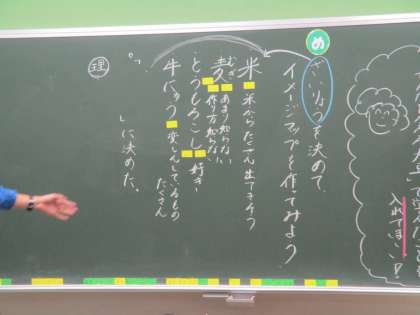 め
ざいりょうを決めて、
イメージマップを作ってみよう。
米 米からたくさん出てきそう
麦 むぎ あまり知らない 作り方知らない
とうもろこし 好き
牛にゅう 変しんしているもの たくさん
「 」に決めた。
理
入れてまい!